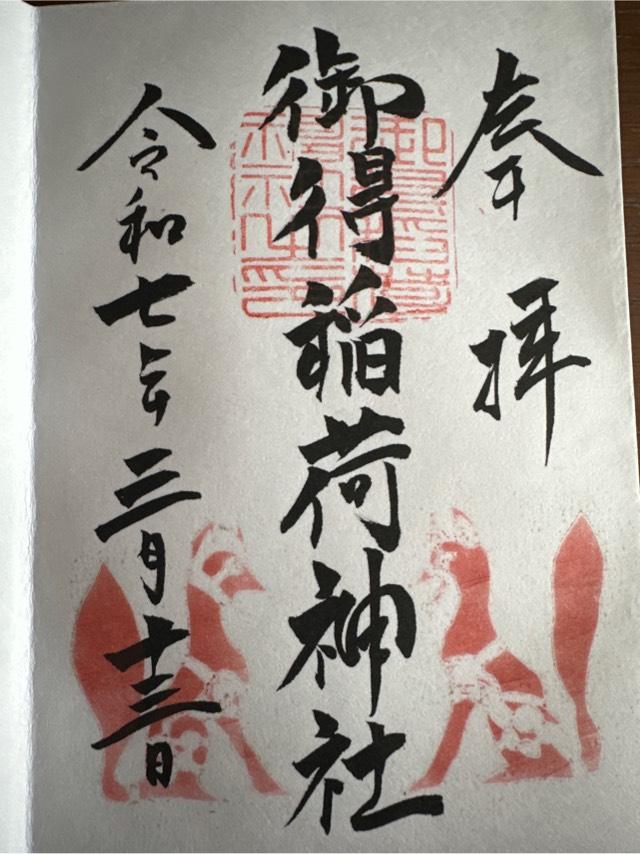 奉拝
御得稲荷神社
令和七年三月十三日